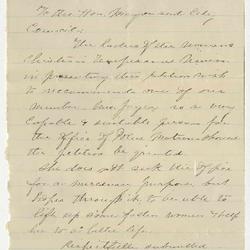 To the Hon. Mayor and City
Council:
The Ladies of the Womans
Christian Temperance Union
in presenting this petition wish
to recommend one of our
number as a very
capable & suitable person for
the office of Police Matron should
the petition be granted.
She does not seek the office
for a mercenary purpose but
hopes through it to be able to
lift up some fallen women & help
her to a better life.
Respectfully submitted